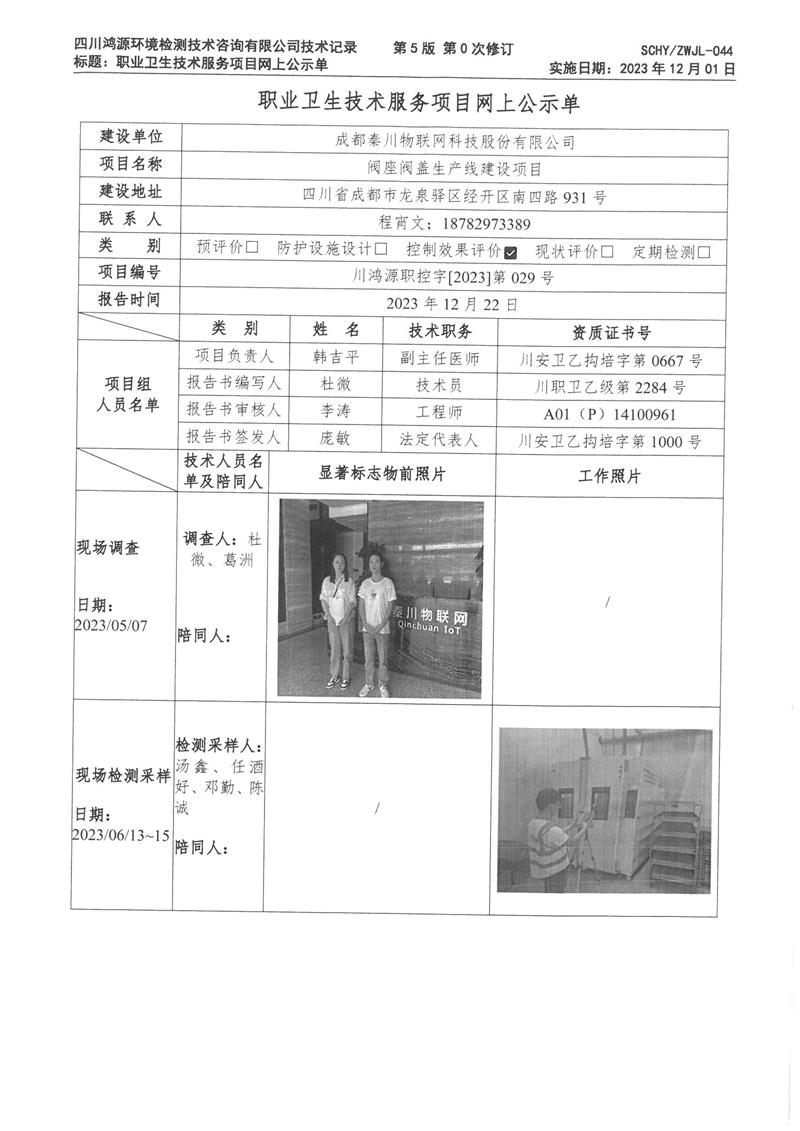 四川鸿源环境检测技术咨询有限公司技术记录 第5版 第0次修订 SCHY/ZWJL-044
标题：职业卫生技术服务项目网上公示单 实施日期：2023年12月01日
职业卫生技术服务项目网上公示单
建设单位 成都秦川物联网科技股份有限公司
项目名称 阀座阀盖生产线建设项目
建设地址 四川省成都市龙泉驿区经开区南四路931号
联系人 程宵文；18782973389
类别 预评价☐ 防护设施设计☐ 控制效果评价☑ 现状评价☐ 定期检测☐
项目编号 川鸿源职控字[2023]第029号
报告时间 2023年12月22日
类别 姓名 技术职务 资质证书号
项目组
人员名单
项目负责人 韩吉平 副主任医师 川安卫乙构培字第0667号
报告书编写人 杜微 技术员 川职卫乙级第2284号
报告书审核人 李涛 工程师 A01（P）14100961
报告书签发人 庞敏 法定代表人 川安卫乙构培字第1000号
技术人员名
单及陪同人 显著标志物前照片 工作照片
现场调查
日期：
2023/05/07
调查人：杜
微、葛洲
陪同人：
秦川物联网
Qinchuan IoT
/
现场检测采样
日期：
2023/06/13~15
检测采样人：
汤鑫、任酒
好、邓勤、陈
诚
陪同人：
/